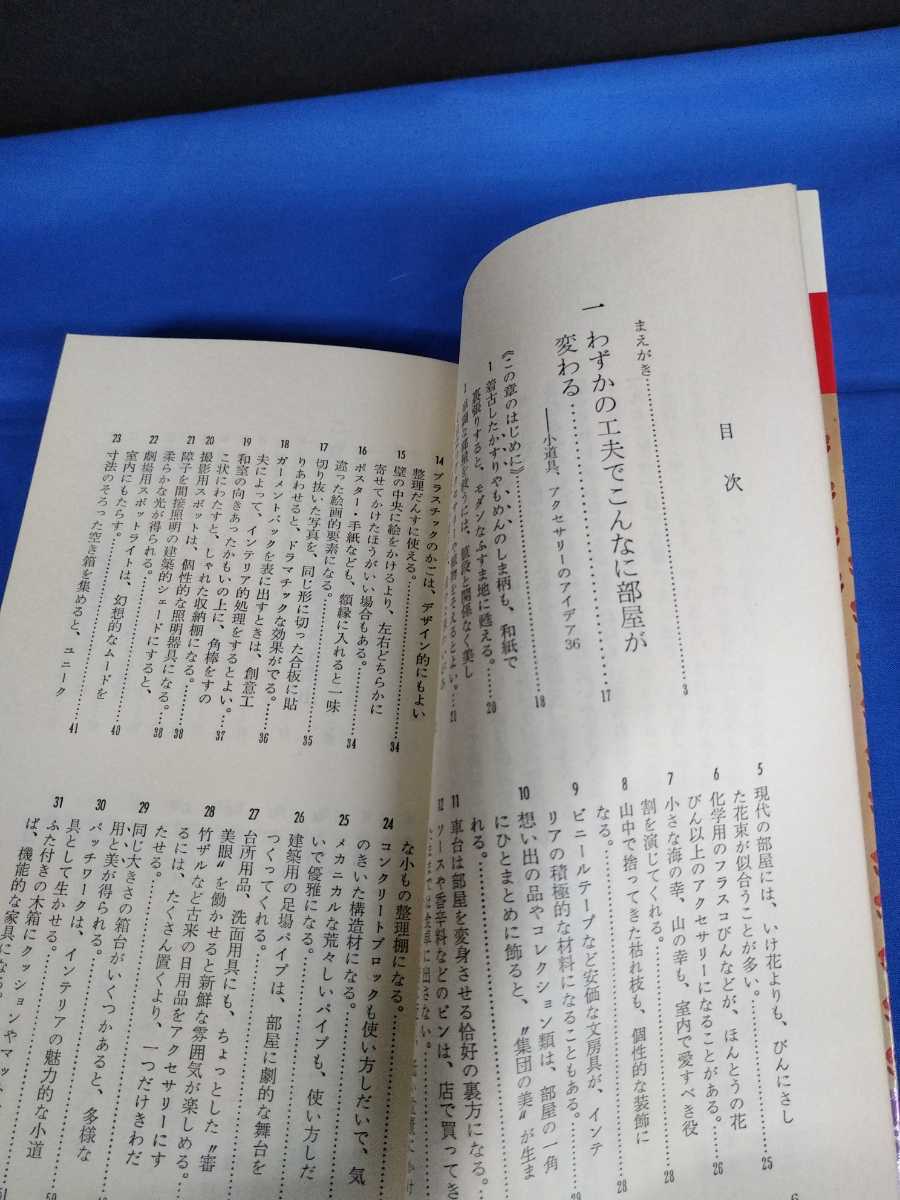 目次
まえがき……………………………3
一 わずかの工夫でこんなに部屋が
変わる……………………17
――小道具、アクセサリーのアイデア36
《この章のはじめに》……………18
1 着古したかすりやもめんのしま柄も、和紙で
裏張りすると、モダンなふすま地に甦える。……20
21
5 現代の部屋には、いけ花よりも、びんにさし
た花束が似合うことが多い。……25
6 化学用のフラスコびんなどが、ほんとうの花
びん以上のアクセサリーになることがある。……26
7 小さな海の幸、山の幸も、室内で愛すべき役
割を演じてくれる。……28
8 山中で捨ってきた枯れ枝も、個性的な装飾に
なる。……28
9 ビニールテープなど安価な文房具が、インテ
リアの積極的な材料になることもある。
10 想い出の品やコレクション類は、部屋の一角
にひとまとめに飾ると、〝集団の美〟が生ま
れる。
11 車台は部屋を変身させる恰好の裏方になる。
12 ソースや香辛料などのビンは、店で買ってき
14 プラスチックのかごは、デザイン的にもよい
整理だんすに使える。……34
15 壁の中央に絵をかけるより、左右どちらかに
寄せてかけたほうがいい場合もある。……34
16 ポスター・手紙なども、額縁に入れると一味
違った絵画的要素になる。……35
17 切り抜いた写真を、同じ形に切った合板に貼
りあわせると、ドラマチックな効果がでる。……36
18 ガーメントバックを表に出すときは、創意工
夫によって、インテリア的処理をするとよい。……37
19 和室の向きあったかもいの上に、角棒をすの
こ状にわたすと、しゃれた収納棚になる。……38
20 撮影用スポットは、個性的な照明器具になる。……38
21 障子を間接照明の建築的シェードにすると、
柔らかな光が得られる。
22 劇場用スポットライトは、幻想的なムードを
室内にもたらす。……40
23 寸法のそろった空き箱を集めると、ユニーク
41
な小もの整理棚になる。
24 コンクリートブロックも使い方しだいで、気
のきいた構造材になる。
25 メカニカルな荒々しいパイプも、使い方しだ
いで優雅になる。
26 建築用の足場パイプは、部屋に劇的な舞台を
つくってくれる。
27 台所用品、洗面用具にも、ちょっとした〝審
美眼〟を働かせると新鮮な雰囲気が楽しめる。
28 竹ザルなど古来の日用品をアクセサリーにす
るには、たくさん置くより、一つだけきわだ
たせる。
29 同じ大きさの箱台がいくつかあると、多様な
用と美が得られる。
30 パッチワークは、インテリアの魅力的な小道
具として生かせる。
31 ふた付きの木箱にクッションやマッ
ば、機能的な家具になる。